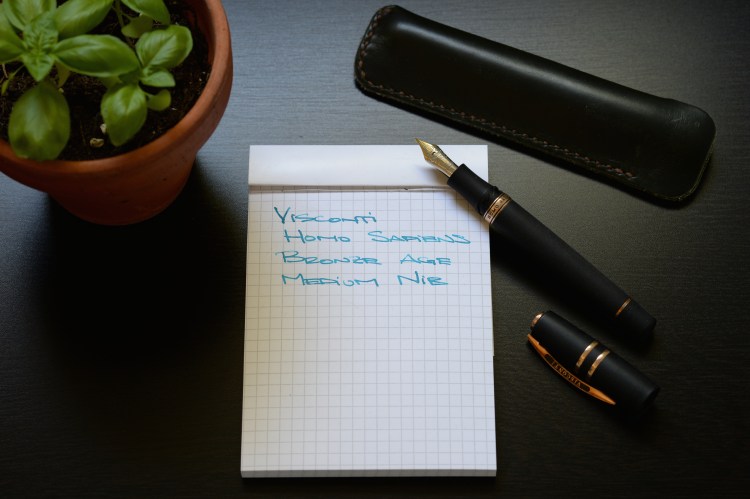 Visconti
Homo Sapiens
Bronze Age
Medium Nib
VISCONTI